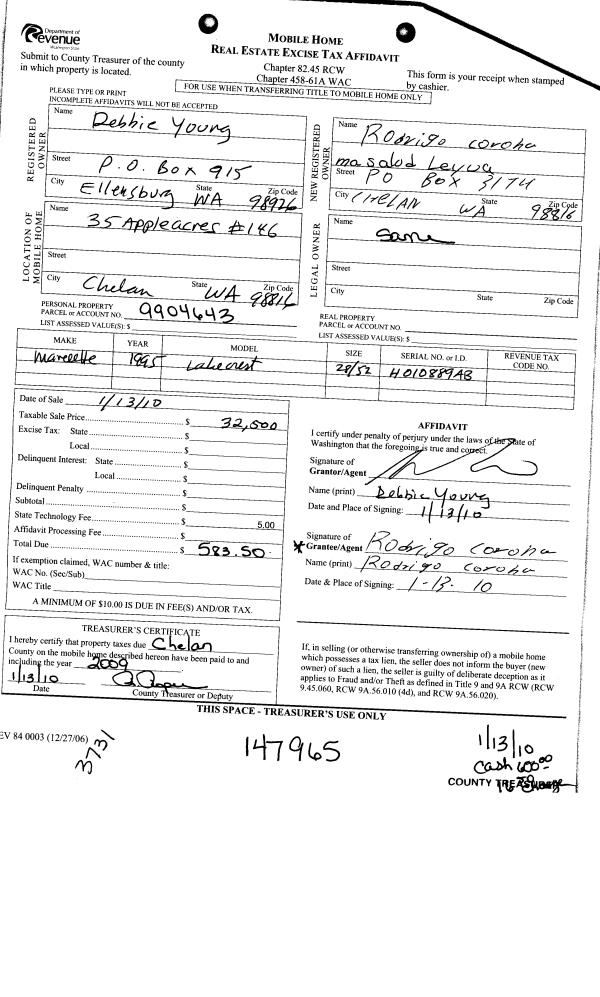 Department of
Revenue
Washington State
MOBILE HOME
REAL ESTATE EXCISE TAX AFFIDAVIT
Submit to County Treasurer of the county
in which property is located.
Chapter 82.45 RCW
Chapter 458-61A WAC
This form is your receipt when stamped
by cashier.
FOR USE WHEN TRANSFERRING TITLE TO MOBILE HOME ONLY
PLEASE TYPE OR PRINT
INCOMPLETE AFFIDAVITS WILL NOT BE ACCEPTED
REGISTERED OWNER
Name Debbie Young
Street P.O. Box 915
City Ellensburg State WA Zip Code 98926
NEW REGISTERED OWNER
Name Rodrigo corona
ma salud Leyva
Street PO Box 3174
City CHELAN State WA Zip Code 98816
LOCATION OF MOBILE HOME
Name 35 Appleacres #146
Street
City Chelan State WA Zip Code 98816
LEGAL OWNER
Name same
Street
City State Zip Code
PERSONAL PROPERTY
PARCEL or ACCOUNT NO. 9904643
LIST ASSESSED VALUE(S): $
REAL PROPERTY
PARCEL or ACCOUNT NO.
LIST ASSESSED VALUE(S): $
MAKE YEAR MODEL SIZE SERIAL NO. or I.D. REVENUE TAX CODE NO.
Marlette 1995 Lakecrest 28/52 H010889AB
Date of Sale 1/13/10
Taxable Sale Price $ 32,500
Excise Tax: State $
Local $
Delinquent Interest: State $
Local $
Delinquent Penalty $
Subtotal $
State Technology Fee $ 5.00
Affidavit Processing Fee $
Total Due $ 583.50
If exemption claimed, WAC number & title:
WAC No. (Sec/Sub)
WAC Title
A MINIMUM OF $10.00 IS DUE IN FEE(S) AND/OR TAX.
AFFIDAVIT
I certify under penalty of perjury under the laws of the State of
Washington that the foregoing is true and correct.
Signature of
Grantor/Agent
Name (print) Debbie Young
Date and Place of Signing: 1/13/10
Signature of
Grantee/Agent Rodrigo corona
Name (print) Rodrigo corona
Date & Place of Signing: 1-13-10
TREASURER'S CERTIFICATE
I hereby certify that property taxes due Chelan
County on the mobile home described hereon have been paid to and
including the year 2009
1/13/10
Date County Treasurer or Deputy
If, in selling (or otherwise transferring ownership of) a mobile home
which possesses a tax lien, the seller does not inform the buyer (new
owner) of such a lien, the seller is guilty of deliberate deception as it
applies to Fraud and/or Theft as defined in Title 9 and 9A RCW (RCW
9.45.060, RCW 9A.56.010 (4d), and RCW 9A.56.020).
THIS SPACE - TREASURER'S USE ONLY
EV 84 0003 (12/27/06)
3731
147965
1/13/10
Cash 600.00
COUNTY TREASURER